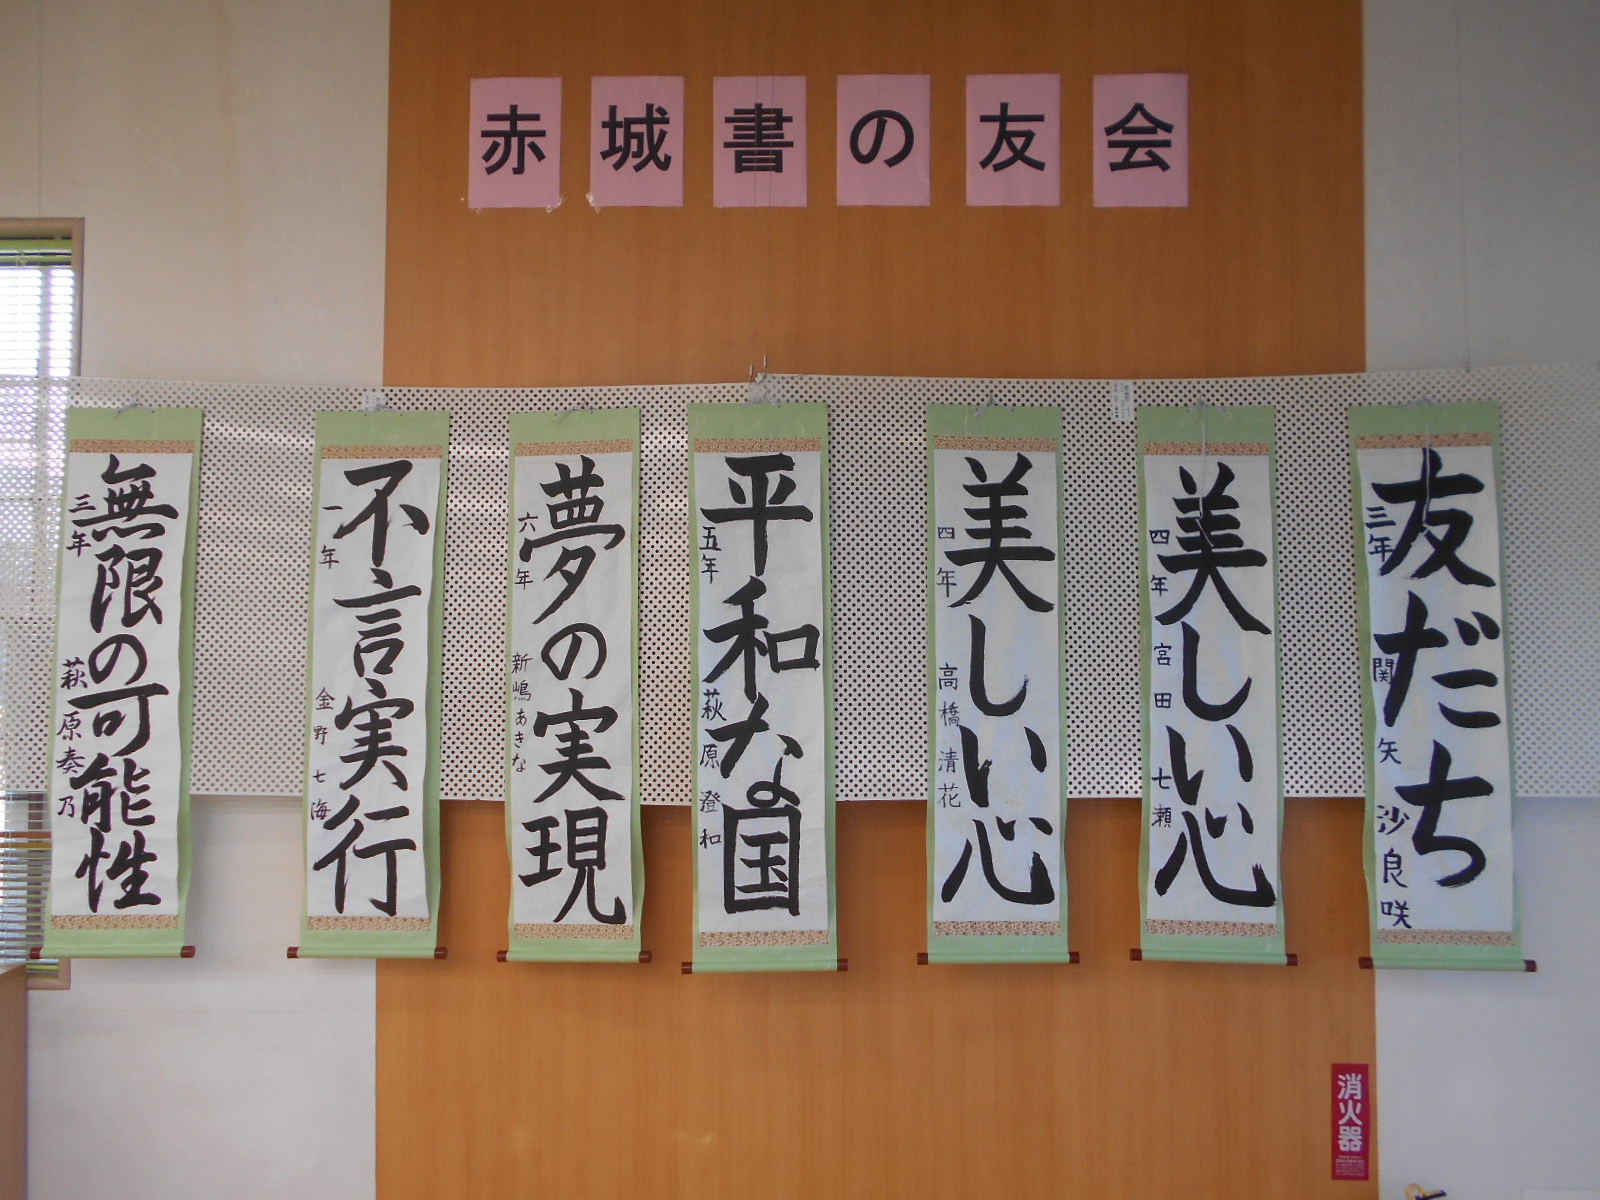 赤城書の友会
友だち
三年 関矢 沙良咲
美しい心
四年 宮田 七瀬
美しい心
四年 高橋 清花
平和な国
五年 萩原 澄和
夢の実現
六年 新嶋あきな
不言実行
一年 金野 七海
無限の可能性
三年 萩原奏乃
消火器